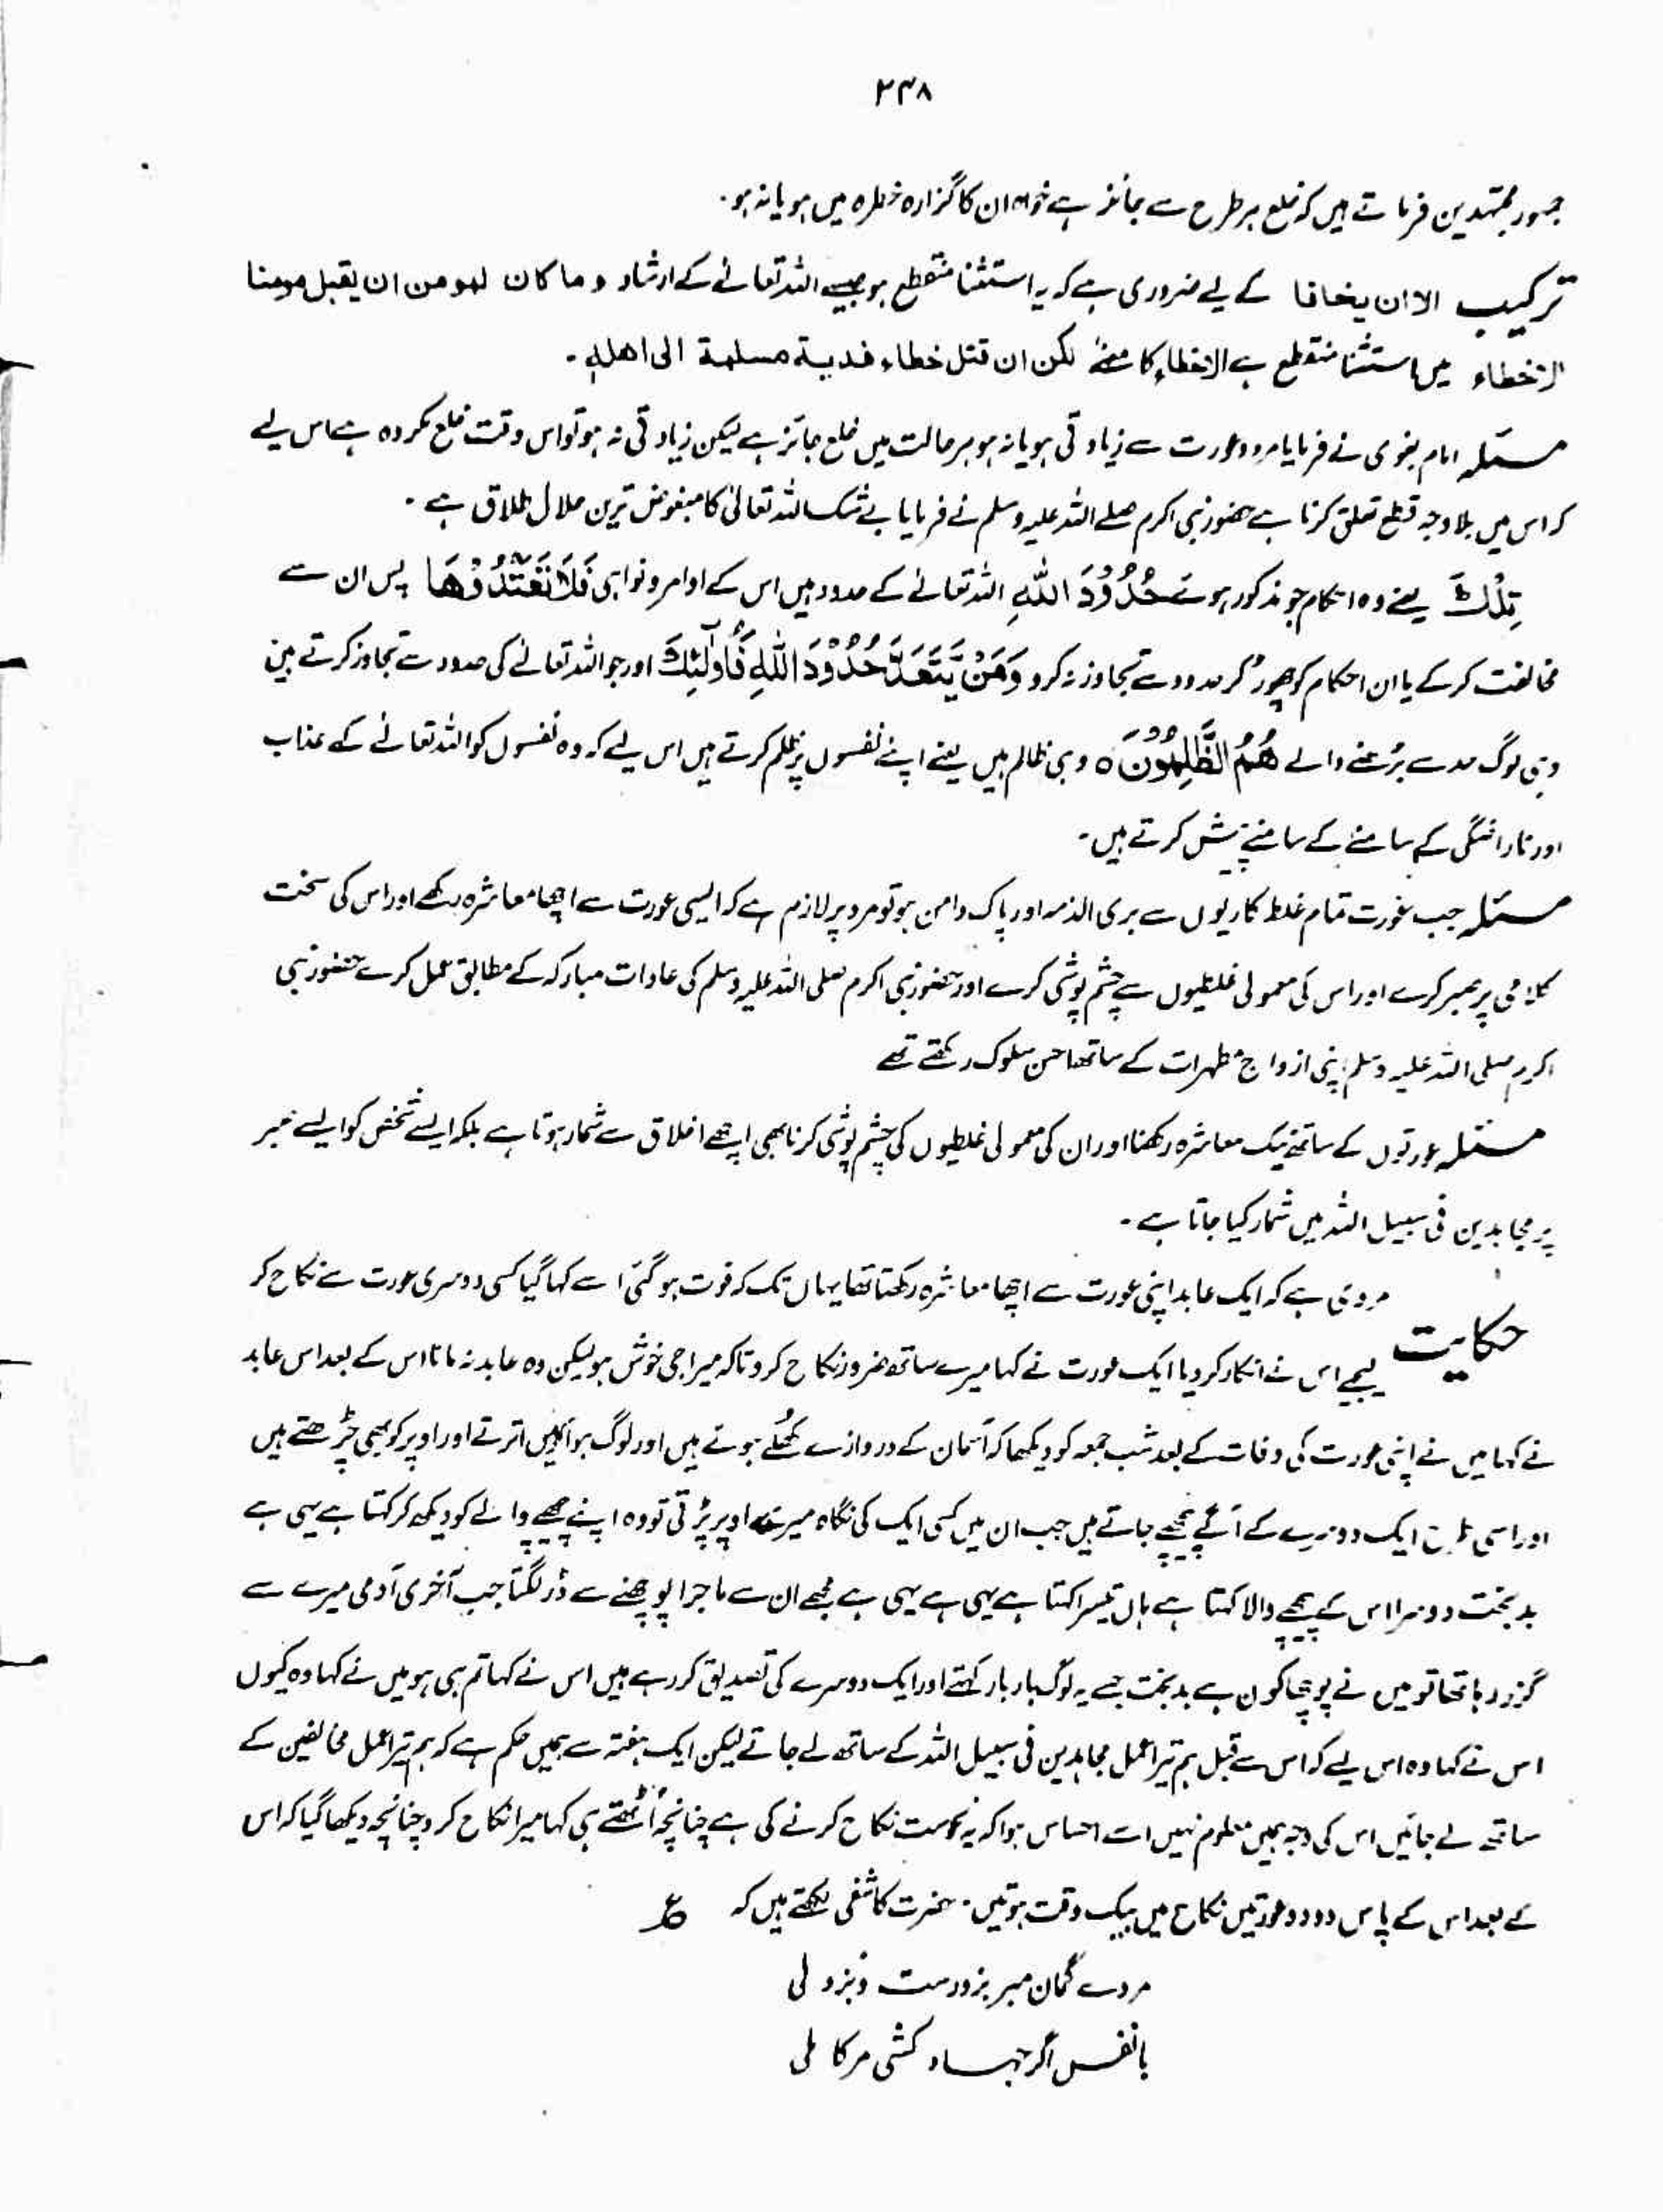 ۲۴۸
جمہور مجتہدین فرماتے ہیں کہ خلع ہر طرح سے جائز ہے خواہ ان کا گزارہ خطرہ میں ہو یا نہ ہو۔
ترکیب الا ان یخافا کے لیے ضروری ہے کہ یہ استثنا منقطع ہو جیسے اللہ تعالےٰ کے ارشاد و ما کان لمومن ان یقبل مومنا
الاخطاء میں استثنا منقطع ہے الاخطاء کا معنےٰ لکن ان قتل خطاء فدیۃ مسلمۃ الی اھلہ۔
مسئلہ امام بغوی نے فرمایا مرد و عورت سے زیادتی ہو یا نہ ہو ہر حالت میں خلع جائز ہے لیکن زیادتی نہ ہو تو اس وقت خلع مکروہ ہے اس لیے
کہ اس میں بلا وجہ قطع تعلق کرنا ہے حضور نبی اکرم صلے اللہ علیہ وسلم نے فرمایا بے شک اللہ تعالیٰ کا مبغوض ترین حلال طلاق ہے۔
تِلْكَ یعنے وہ احکام جو مذکور ہوئے حُدُوْدَ اللّٰهِ اللہ تعالےٰ کے حدود ہیں اس کے اوامر و نواہی فَلَا تَعْتَدُوْهَا پس ان سے
مخالفت کر کے یا ان احکام کو چھوڑ کر حدود سے تجاوز نہ کرو وَمَنْ يَّتَعَدَّ حُدُوْدَ اللّٰهِ فَاُولٰٓئِكَ اور جو اللہ تعالےٰ کی حدود سے تجاوز کرتے ہیں
وہی لوگ حد سے بڑھنے والے هُمُ الظّٰلِمُوْنَ ہ وہی ظالم ہیں یعنے اپنے نفسوں پر ظلم کرتے ہیں اس لیے کہ وہ نفسوں کو اللہ تعالےٰ کے عذاب
اور ناراضگی کے سامنے کے سامنے پیش کرتے ہیں۔
مسئلہ جب عورت تمام غلط کاریوں سے بری الذمہ اور پاک دامن ہو تو مرد پر لازم ہے کہ ایسی عورت سے اچھا معاشرہ رکھے اور اس کی سخت
کلامی پر صبر کرے اور اس کی معمولی غلطیوں سے چشم پوشی کرے اور حضور نبی اکرم صلی اللہ علیہ وسلم کی عادات مبارکہ کے مطابق عمل کرے حضور نبی
اکرم صلی اللہ علیہ وسلم اپنی ازواج مطہرات کے ساتھ احسن سلوک رکھتے تھے
مسئلہ عورتوں کے ساتھ نیک معاشرہ رکھنا اور ان کی معمولی غلطیوں کی چشم پوشی کرنا بھی اچھے اخلاق سے شمار ہوتا ہے بلکہ ایسے شخص کو ایسے صبر
پر مجاہدین فی سبیل اللہ میں شمار کیا جاتا ہے۔
حکایت مروی ہے کہ ایک عابد اپنی عورت سے اچھا معاشرہ رکھتا تھا یہاں تک کہ فوت ہو گئی اسے کہا گیا کسی دوسری عورت سے نکاح کر
لیجیے اس نے انکار کر دیا ایک عورت نے کہا میرے ساتھ ضرور نکاح کرو تاکہ میرا جی خوش ہو لیکن وہ عابد نہ مانا اس کے بعد اس عابد
نے کہا میں نے اپنی عورت کی وفات کے بعد شب جمعہ کو دیکھا کہ آسمان کے دروازے کُھلے ہوئے ہیں اور لوگ ہوا میں اترتے اور اوپر کو بھی چڑھتے ہیں
اور اسی طرح ایک دوسرے کے آگے پیچھے جاتے ہیں جب ان میں کسی ایک کی نگاہ میرے اوپر پڑتی تو وہ اپنے پیچھے والے کو دیکھ کر کہتا ہے یہی ہے
بدبخت دوسرا اس کے پیچھے والا کہتا ہے ہاں تیسرا کہتا ہے یہی ہے یہی ہے مجھے ان سے ماجرا پوچھنے سے ڈر لگتا جب آخری آدمی میرے سے
گزر رہا تھا تو میں نے پوچھا کون ہے بدبخت جسے یہ لوگ بار بار کہتے اور ایک دوسرے کی تصدیق کر رہے ہیں اس نے کہا تم ہی ہو میں نے کہا وہ کیوں
اس نے کہا وہ اس لیے کہ اس سے قبل ہم تیرا عمل مجاہدین فی سبیل اللہ کے ساتھ لے جاتے لیکن ایک ہفتہ سے ہمیں حکم ہے کہ ہم تیرا عمل مخالفین کے
ساتھ لے جائیں اس کی وجہ ہمیں معلوم نہیں اسے احساس ہوا کہ یہ نحوست نکاح کرنے کی ہے چنانچہ اُٹھتے ہی کہا میرا نکاح کر دو چنانچہ دیکھا گیا کہ اس
کے بعد اس کے پاس دو دو عورتیں نکاح میں بیک وقت ہوتیں۔ حضرت کاشفی لکھتے ہیں کہ ؏
مردے گمان مبر بزورست و پُردلی
بانفس اگر جہاد کنی مرد کاملی